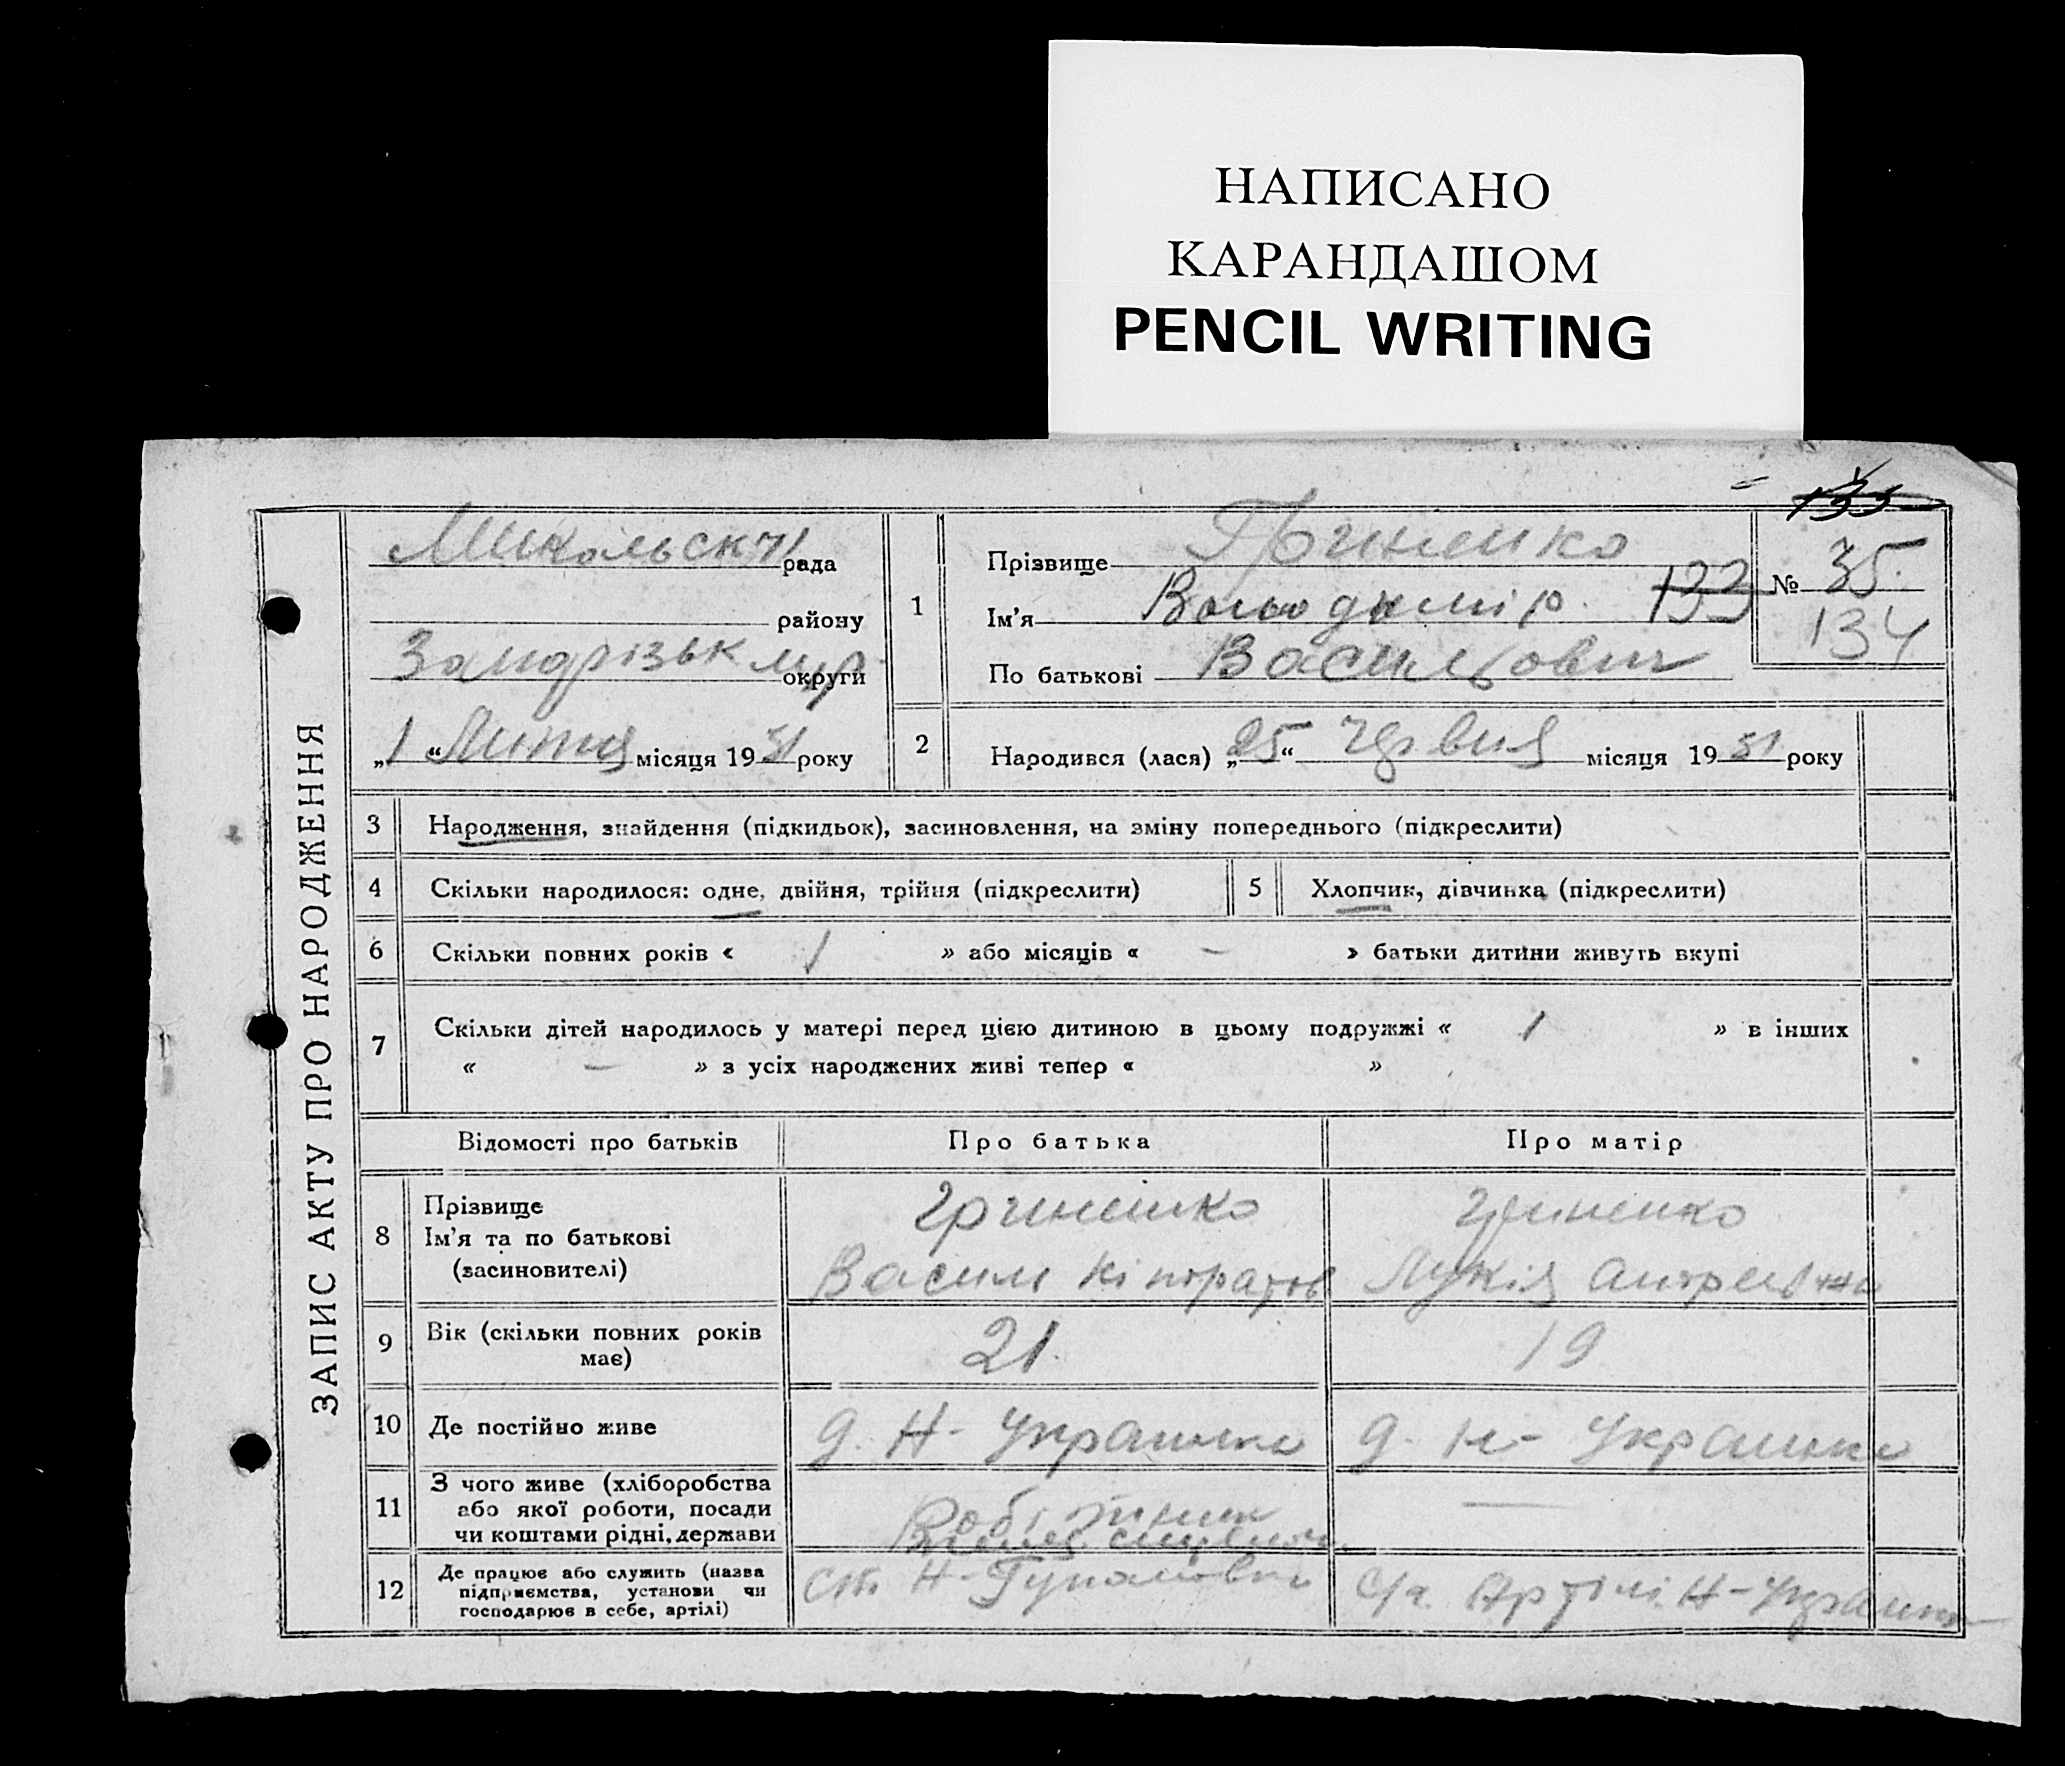 НАПИСАНО
КАРАНДАШОМ
PENCIL WRITING
133
ЗАПИС АКТУ ПРО НАРОДЖЕННЯ
Микольськ рада
району
округи
„1“ місяця 1931 року
1
Прізвище Гриненко
Ім'я Володимір. 133
По батькові Васильович
№ 35.
134
2 Народився (лася) „25“ червня місяця 1931 року
3 Народження, знайдення (підкидьок), засиновлення, на зміну попереднього (підкреслити)
4 Скільки народилося: одне, двійня, трійня (підкреслити)
5 Хлопчик, дівчинка (підкреслити)
6 Скільки повних років « 1 » або місяців « - » батьки дитини живуть вкупі
7 Скільки дітей народилось у матері перед цією дитиною в цьому подружжі « 1 » в інших
« — » з усіх народжених живі тепер « »
Відомості про батьків Про батька Про матір
8 Прізвище Гриненко Гриненко
Ім'я та по батькові
(засиновителі) Василь Лукія
9 Вік (скільки повних років
має) 21. 19
10 Де постійно живе д. Н-Украинка д. Н-Украинка
11 З чого живе (хліборобства
або якої роботи, посади
чи коштами рідні, держави Робітник —
12 Де працює або служить (назва
підприємства, установи чи
господарює в себе, артілі) ст. Н- с/г. Артілі Н-Украинка